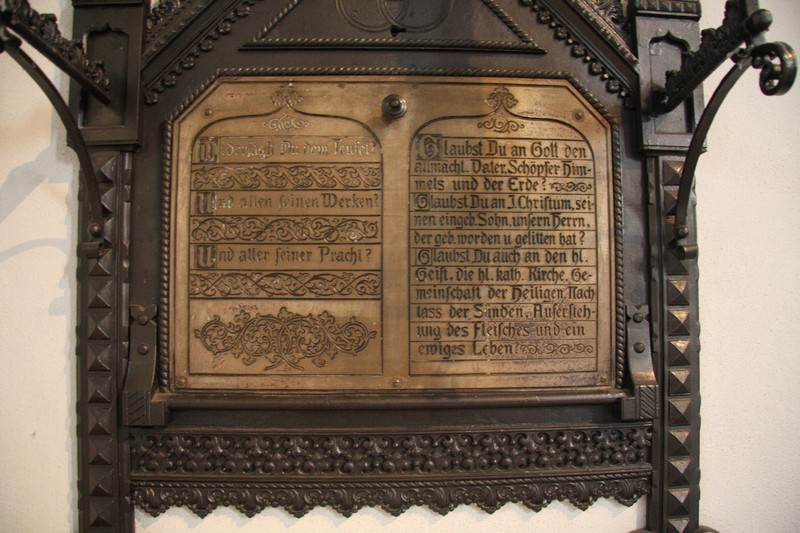 Widersagst Du dem Teufel?
Und allen seinen Werken?
Und aller seiner Pracht?
Glaubst Du an Gott den
allmächt. Vater, Schöpfer Him-
mels und der Erde?
Glaubst Du an J. Christum, sei-
nen eingeb. Sohn, unsern Herrn,
der geb. worden u. gelitten hat?
Glaubst Du auch an den hl.
Geist, die hl. kath. Kirche, Ge-
meinschaft der Heiligen, Nach
lass der Sünden, Aufersteh-
ung des Fleisches und ein
ewiges Leben?